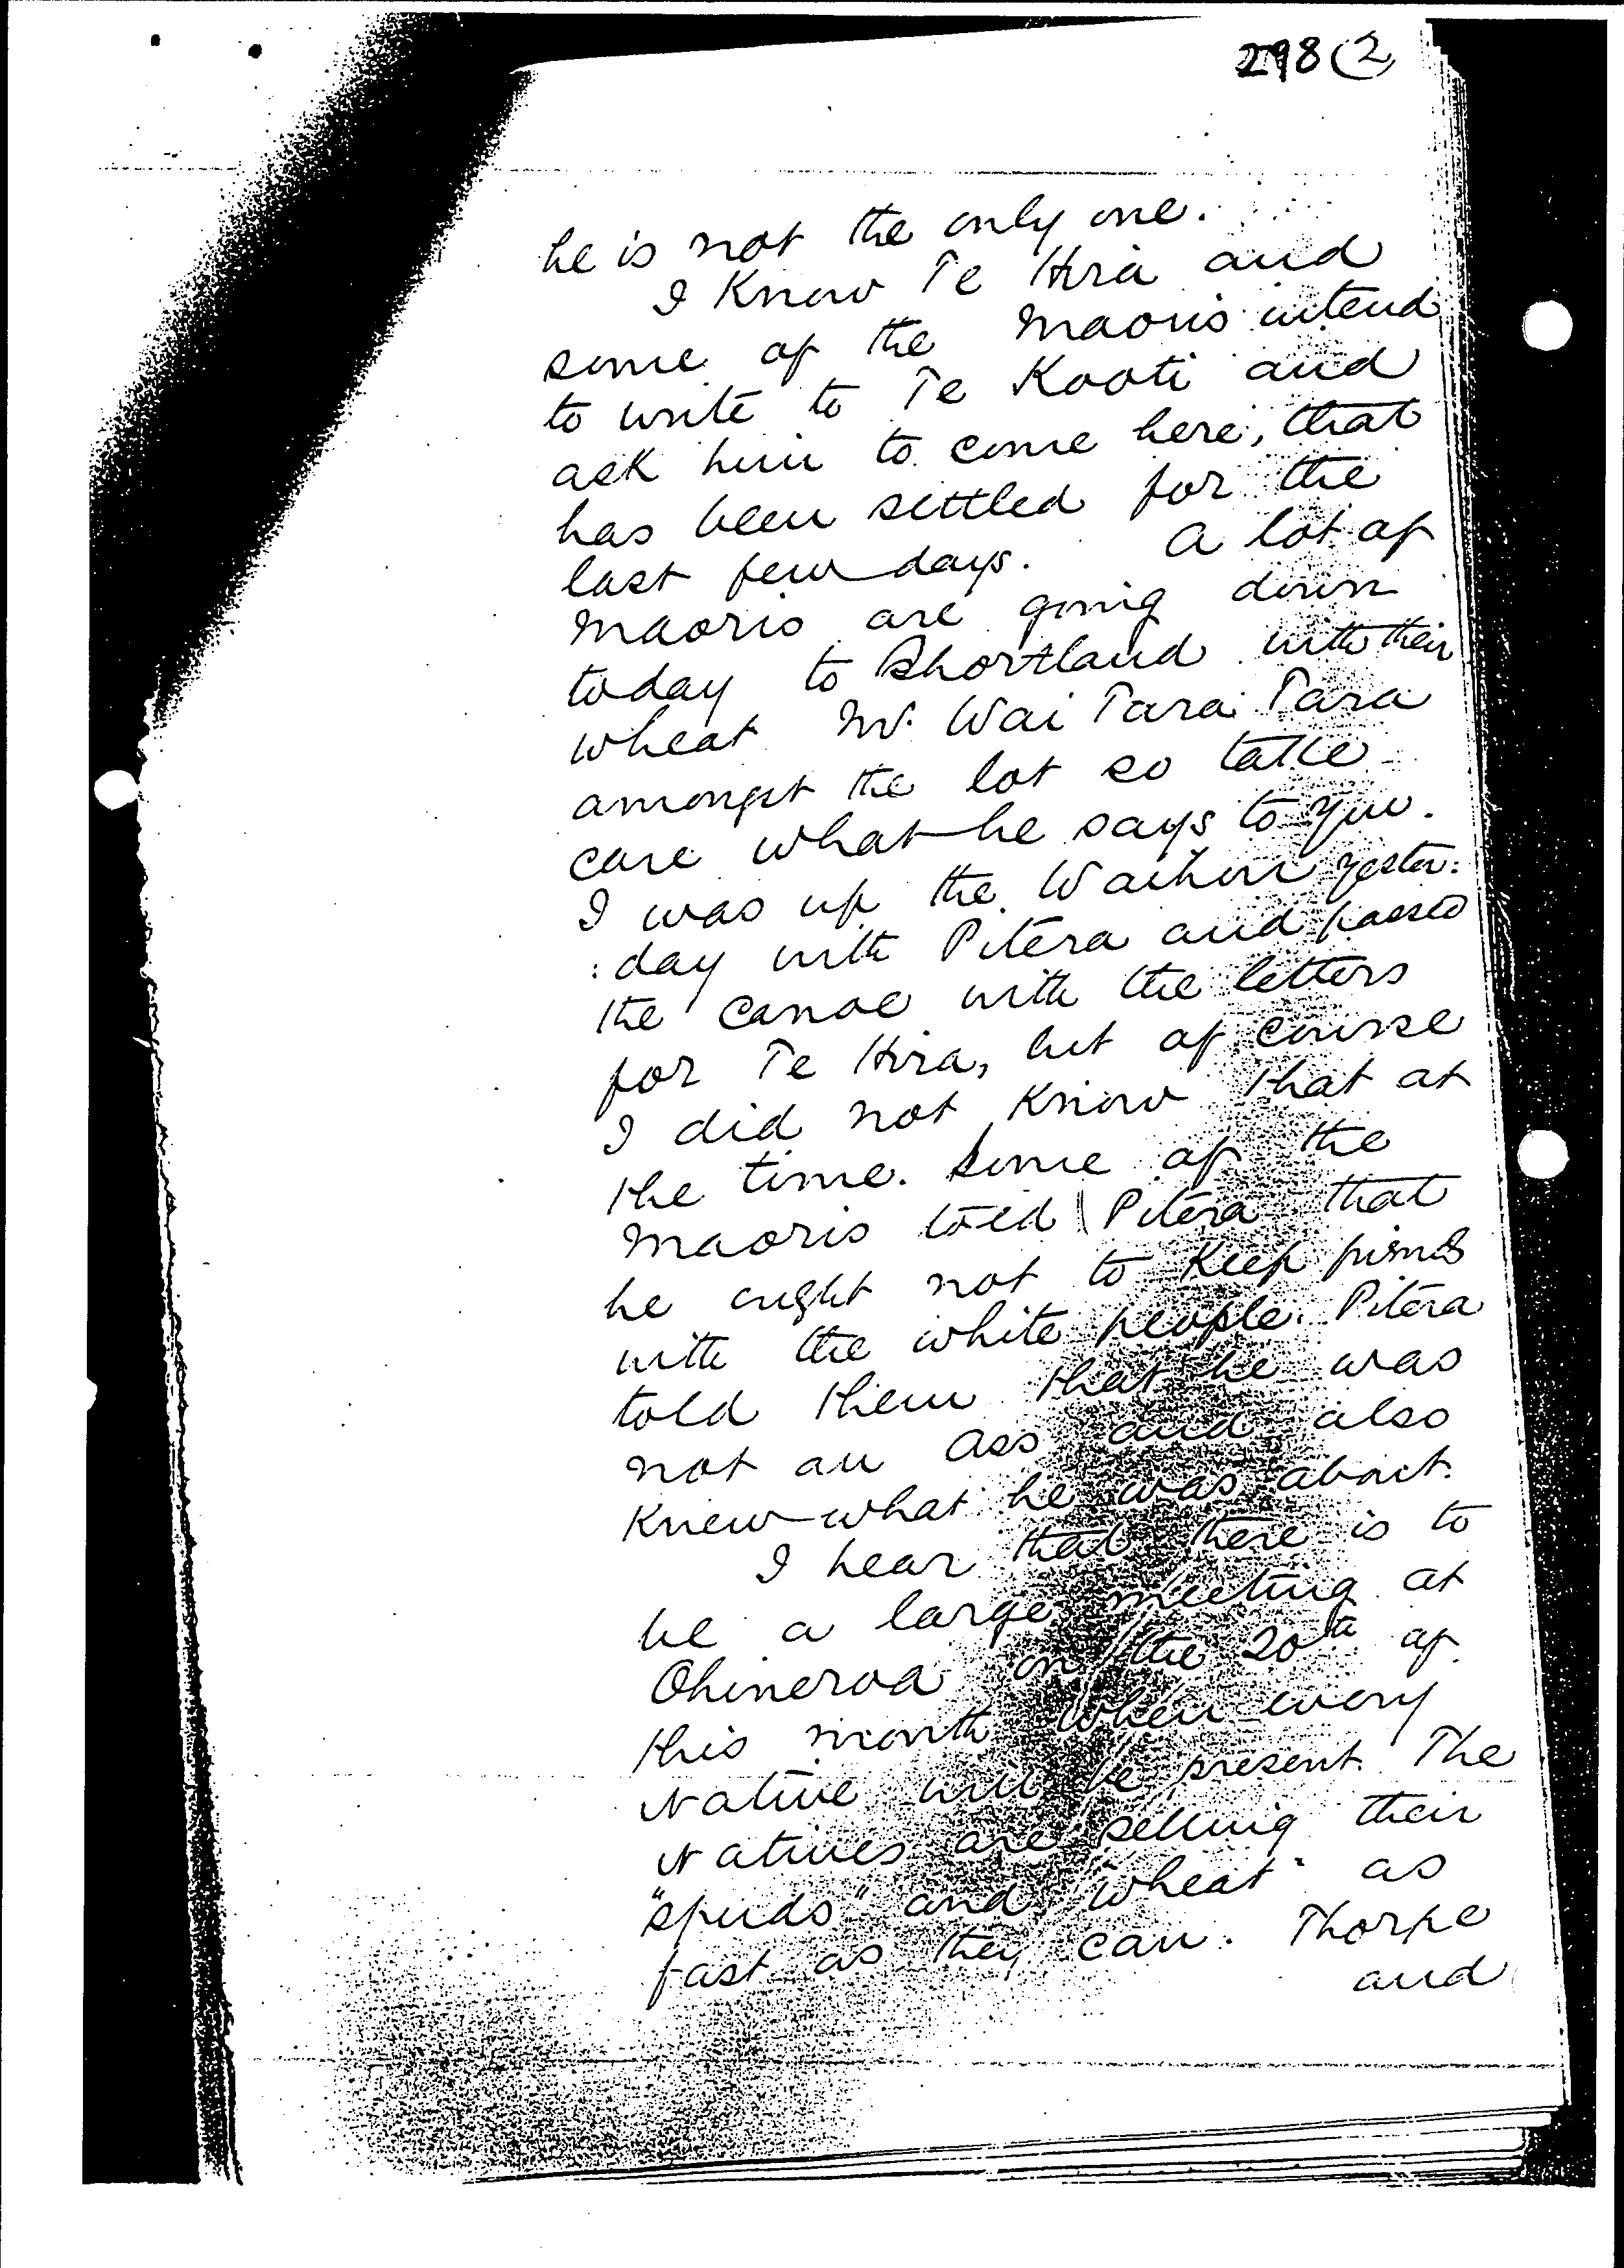 298 (2)
he is not the only one.
I Know Te Hira and
some of the Maoris intend
to write to Te Kooti and
ask him to come here, that
has been settled for the
last few days. A lot of
Maoris are going down
today to Shortland with their
wheat Mr. Wai Tara Tara
amongst the lot so take
care what he says to you.
I was up the Waihou yester:
:day with Pitera and passed
the canoe with the letters
for Te Hira, but of course
I did not Know that at
the time. Some of the
Maoris told Pitera that
he ought not to Keep friends
with the white people. Pitera
told them that he was
not an ass and also
Knew what he was about.
I hear that there is to
be a large meeting at
Ohineroa on the 20th of
this month when every
Native will be present. The
Natives are selling their
"spuds" and "wheat" as
fast as they can. Thorpe
and